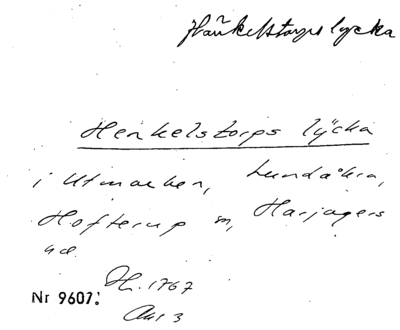 Häŭkelstorps lycka
Henkelstorps lÿcka
i Utmarken, Lundåkra,
Hofterup sn, Harjagers
hd.
H. 1767
Akt 3
Nr 9607.